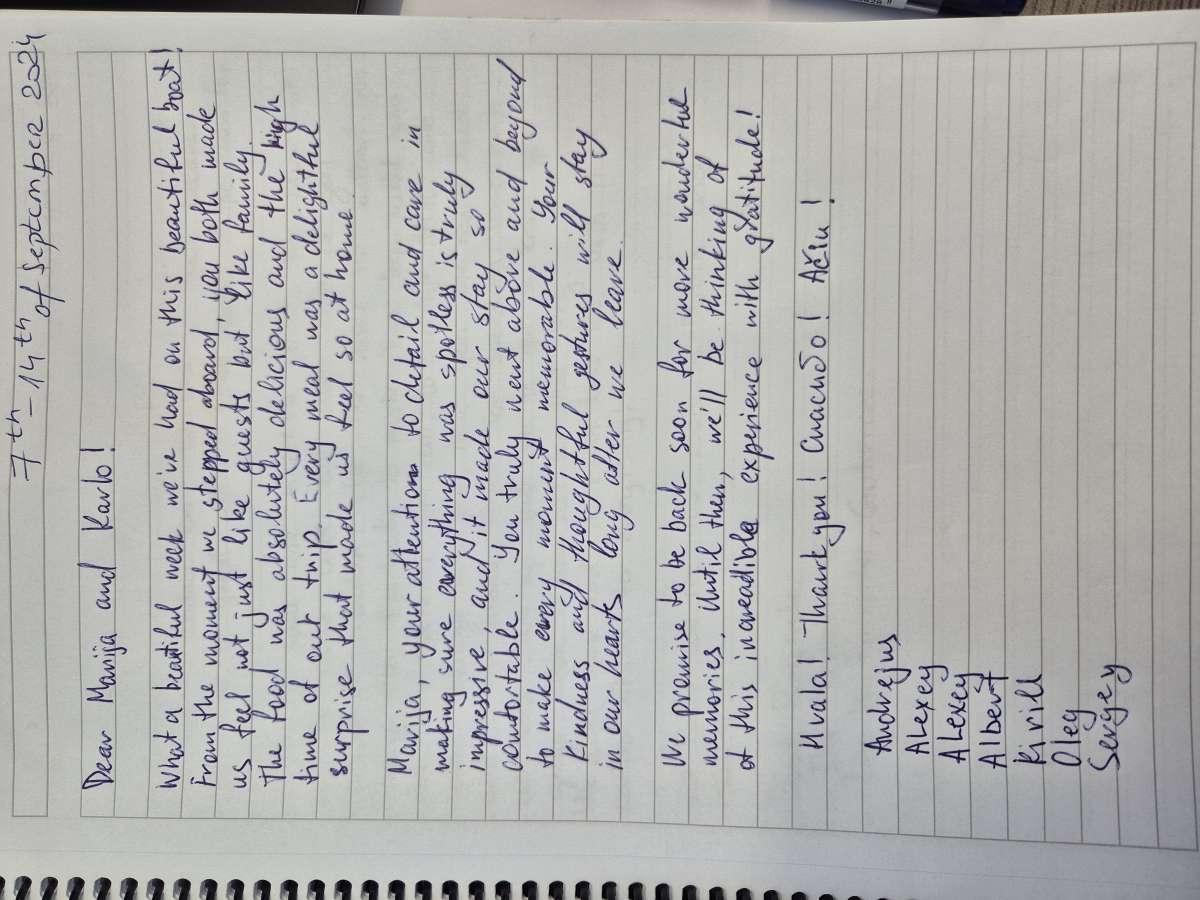 7th – 14th
of September 2024
Dear Marija and Karlo!
What a beautiful week we've had on this beautiful boat!
From the moment we stepped aboard, you both made
us feel not just like guests but like family.
The food was absolutely delicious and the high
time of out trip. Every meal was a delightful
surprise that made us feel so at home.
Marija, your attention to detail and care in
making sure everything was spotless is truly
impressive, and it made our stay so
comfortable. You truly went above and beyond
to make every moment memorable. Your
kindness and thoughtful gestures will stay
in our hearts long after we leave.
We promise to be back soon for more wonderful
memories. Until then, we'll be thinking of
of this increadible experience with gratitude!
Hvala! Thank you! Спасибо! Ačiu!
Andrejus
Alexey
Alexey
Albert
Kirill
Oleg
Sergey